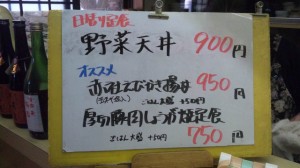 日替定食
野菜天丼 900円
オススメ
赤エビかき揚丼 950円
ごはん大盛 +50円
厚切豚肉しょうが焼定食
ごはん大盛 +50円 750円